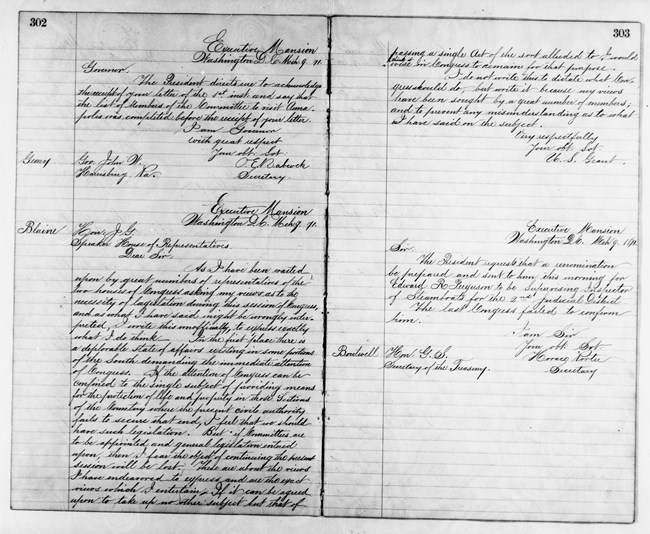 302
Executive Mansion
Washington D.C. Mch 9. 71.
Governor.
The President directs me to acknowledge
the receipt of your letter of the 1st inst. and say that
the list of Members of the Committee to visit Anna
polis was completed before the receipt of your letter.
I am Governor
with great respect
Your obt. Svt.
O E Babcock
Secretary
Geary
Gov. John W.
Harrisburg Pa.
Executive Mansion
Washington D.C. Mch 9. 71.
Blaine
Hon. J. G.
Speaker House of Representatives.
Dear Sir.
As I have been waited
upon by great numbers of representatives of the
two houses of Congress asking my views as to the
necessity of legislation during this session of Congress,
and as what I have said might be wrongly inter-
preted, I write this unofficially, to express exactly
what I do think. In the first place there is
a deplorable state of affairs existing in some portions
of the South demanding the immediate attention
of Congress. If the attention of Congress can be
confined to the single subject of providing means
for the protection of life and property in those Sections
of the Country where the present civil authority
fails to secure that end, I feel that we should
have such legislation. But if Committees are
to be appointed and general legislation entered
upon, then I fear the object of continuing the present
session will be lost. These are about the views
I have endeavored to express and are the exact
views which I entertain. If it can be agreed
upon to take up no other subject but that of
303
passing a single Act of the sort alluded to, I would
in Congress to remain for that purpose.
I do not write this to dictate what Con-
gress should do, but write it because my views
have been sought by a great number of members,
and to prevent any misunderstanding as to what
I have said on the subject.
Very respectfully
Your obt Svt
U. S. Grant.
Executive Mansion
Washington D.C. Mch 9. 1871.
Sir.
The President requests that a renomination
be prepared and sent to him this morning for
Edward R. Ferguson to be Supervising Inspector
of Steamboats for the 2nd judicial District
The last Congress failed to confirm
him.
I am Sir
Your obt. Svt
Horace Porter
Secretary
Boutwell
Hon. G. S.
Secretary of the Treasury.